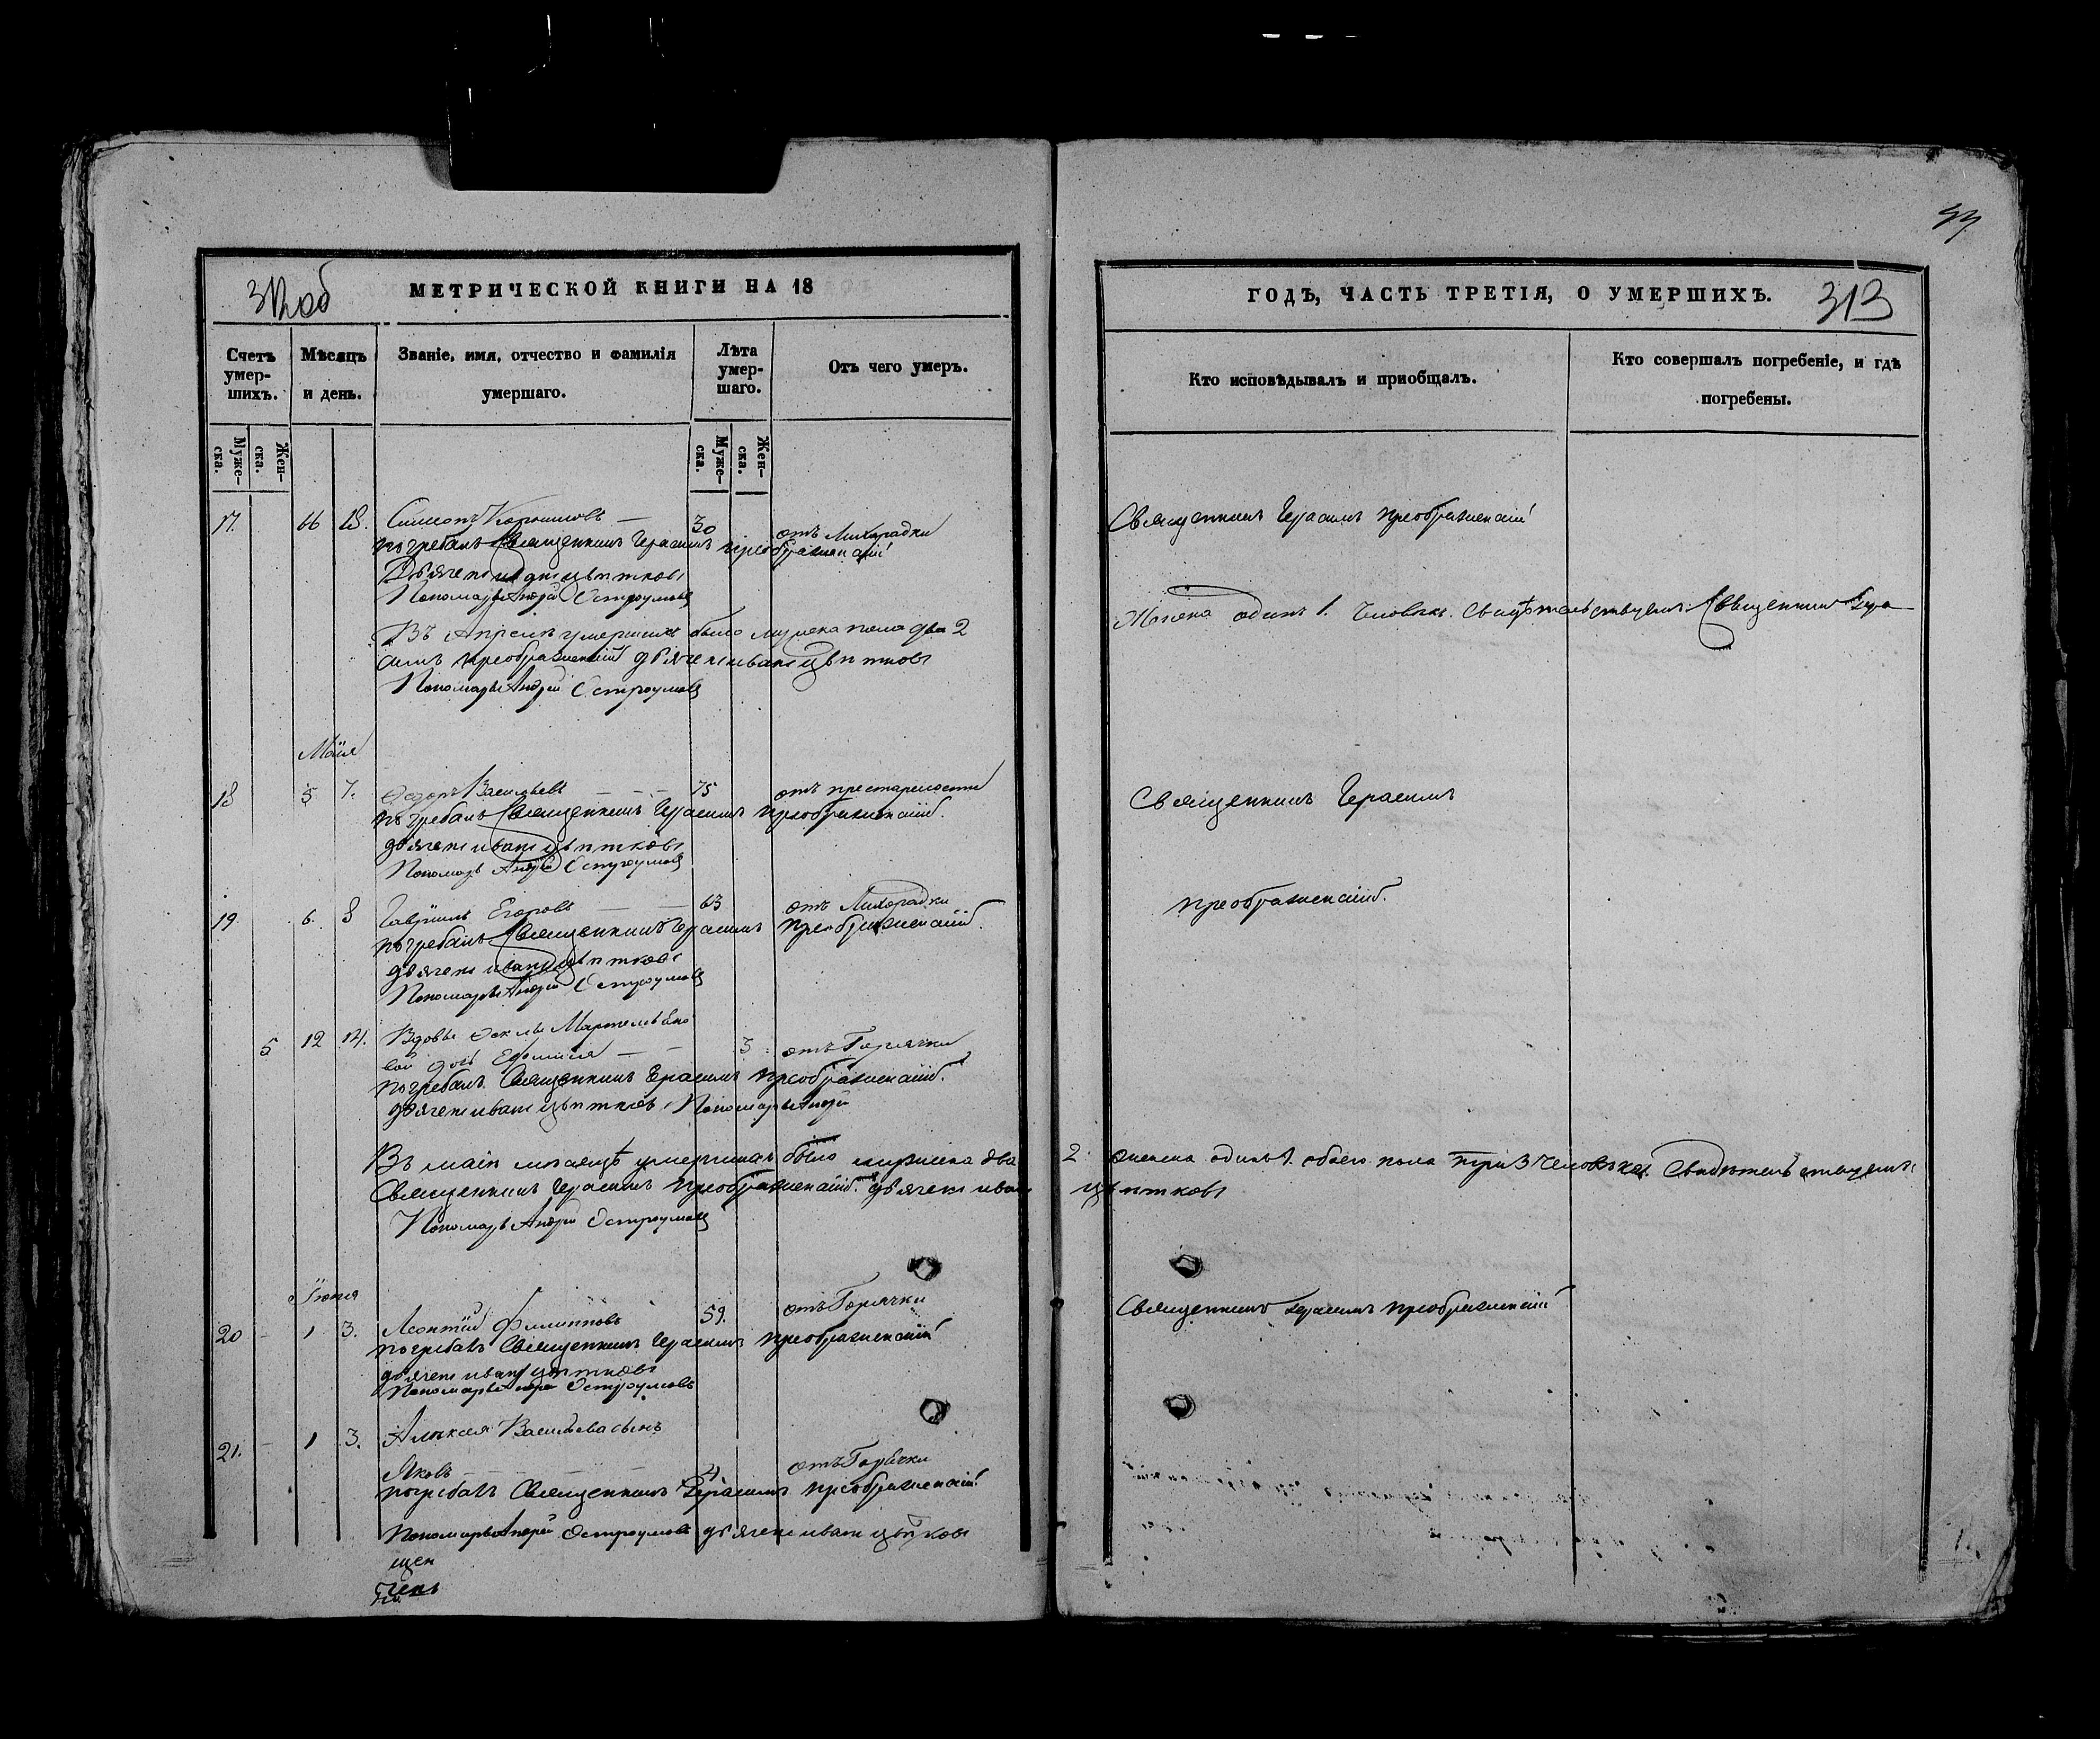 312об
МЕТРИЧЕСКОЙ КНИГИ НА 18
Счетъ умер-шихъ.
Мѣсяцъ и день.
Званіе, имя, отчество и фамилія умершаго.
Лѣта умер-шаго.
Отъ чего умеръ.
Муже-ска.
Жен-ска.
Муже-ска.
Жен-ска.
17. 16 18. Симеонъ 30 отъ Лихорадки
погребалъ Священникъ Герасимъ Преображенскій
Дьячекъ Иванъ Цвѣтковъ
Пономарь Андрей Остроумовъ
Въ Апрелѣ умершихъ было мужска пола два 2
симъ Преображенскій дьячекъ иванъ Цвѣтковъ
Пономарь Андрей Остроумовъ
Маія
18 5 7. Ѳедоръ Васильевъ 75 отъ престарелости
погребалъ Священникъ Герасимъ Преображенскій.
дьячекъ иванъ цвѣтковъ
Пономарь Андрей Остроумовъ
19 6. 8 Гавріилъ Егоровъ 63 отъ Лихорадки
погребалъ Священникъ Герасимъ Преображенскій.
дьячекъ иванъ цвѣтковъ
Пономарь Андрей Остроумовъ
5 12 14. Вдовы Ѳеклы
вой дочь Ефимія 3 отъ Горячки
погребалъ Священникъ Герасимъ Преображенскій.
дьячекъ иванъ цвѣтковъ Пономарь Андрей
Въ маіи месяцѣ умершихъ было мужска два
Священникъ Герасимъ Преображенскій. дьячекъ иванъ
Пономарь Андрей Остроумовъ
Іюня
20 1 3. Леонтій Филипповъ 59. отъ Горячки
погребалъ Священникъ Герасимъ Преображенскій
дьячекъ иванъ цвѣтковъ
Пономарь Андрей Остроумовъ
21. 1 3. Алексея Васильева сынъ
Яковъ отъ Горячки
погребалъ Священникъ Герасимъ Преображенскій
Пономарь Андрей Остроумовъ дьячекъ иванъ цвѣтковъ
ГОДЪ, ЧАСТЬ ТРЕТІЯ, О УМЕРШИХЪ.
313
Кто исповѣдывалъ и приобщалъ.
Кто совершалъ погребеніе, и гдѣ погребены.
Священникъ Герасимъ Преображенскій
Женска одинъ 1. Человѣкъ. Свидѣтельствуемъ Священникъ Гера
Священникъ Герасимъ
Преображенскій.
2 женска одинъ 1. обоего пола три 3 человѣка. Свидѣтельствуемъ
цвѣтковъ
Священникъ Герасимъ Преображенскій